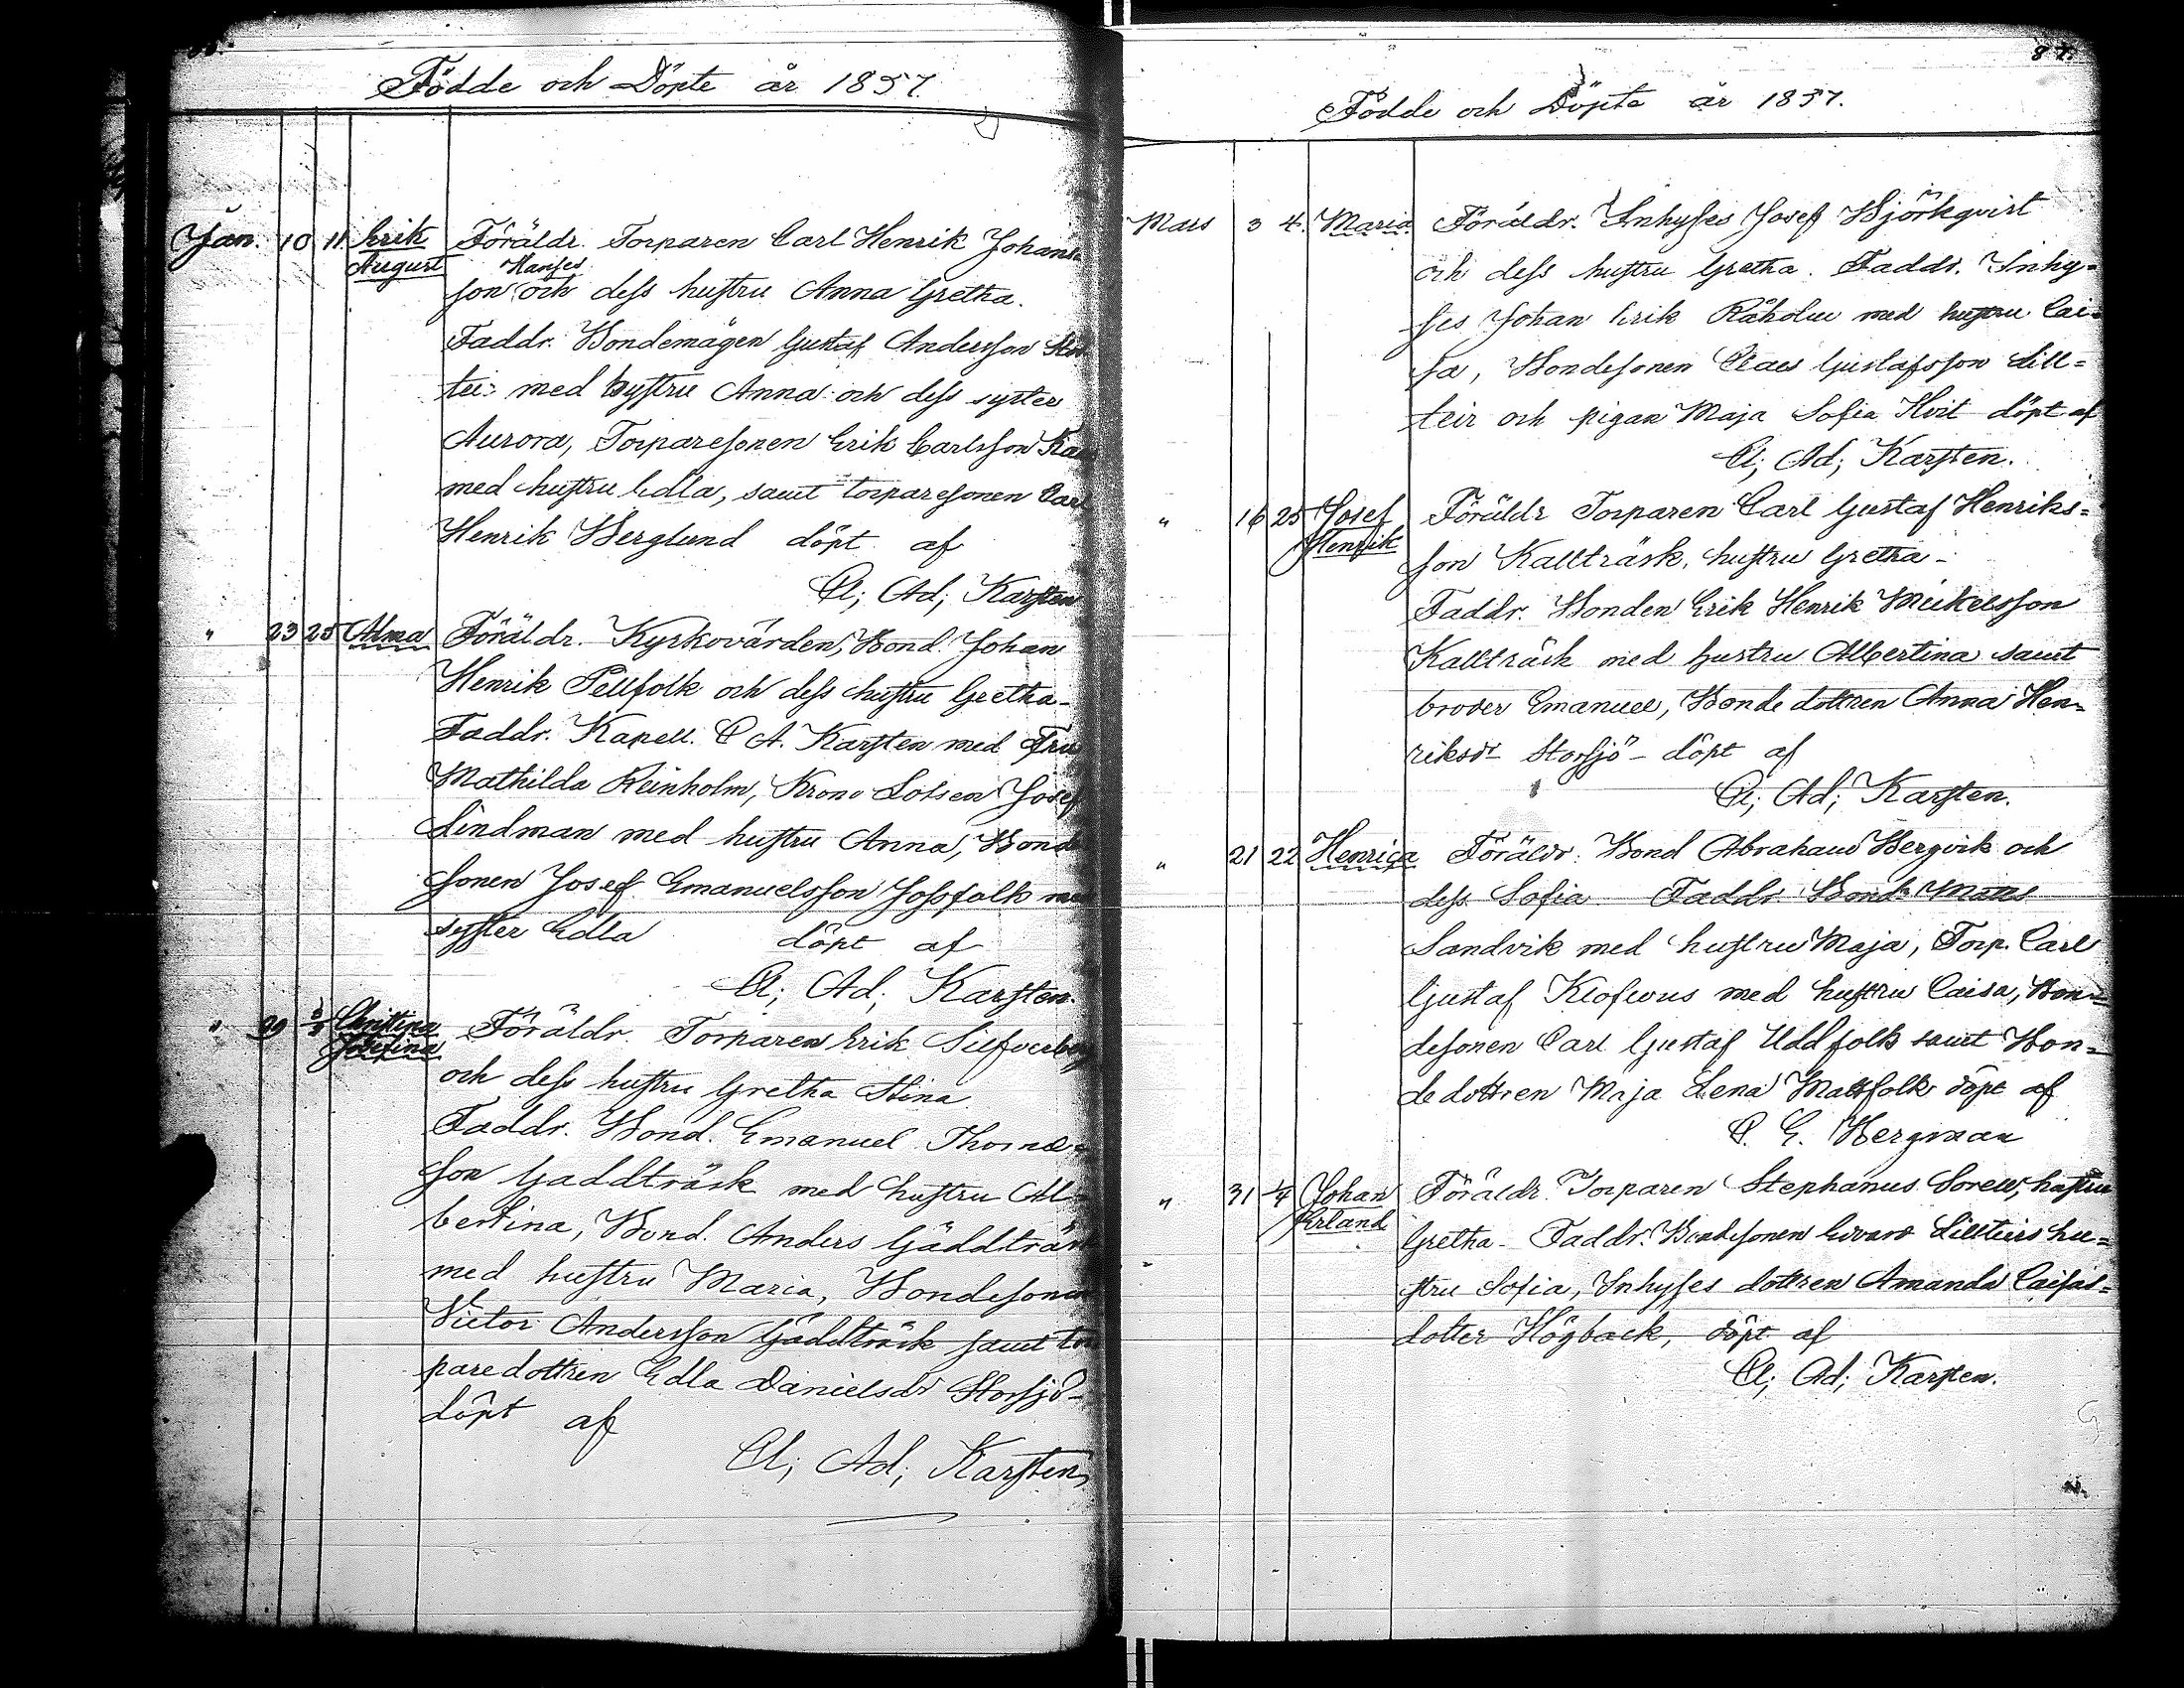 Födde och Döpte år 1857.
Jan. 10 11 Erik August Föräldr. Torparen Carl Henrik Johans
Hanses
son och dess hustru Anna Gretha.
Faddr. Bondemågen Gustaf Andersson
tei: med hustru Anna och dess syster
Aurora, Torparesonen Erik Carlsson
med hustru Edla, samt torparesonen Carl
Henrik Berglund döpt af
Cl; Ad; Karsten
" 23 25 Alma Föräldr. Kyrkovärden, Bond. Johan
Henrik Pellfolk och dess hustru Gretha-
Faddr. Kapell. C A. Karsten med Fru
Mathilda Reinholm, Krono Lotsen Josef
Lindman med hustru Anna, Bonde
sonen Josef Emanuelsson Jossfolk med
syster Edla döpt af
Cl; Ad; Karsten.
" 29 Christina Josefina Föräldr. Torparen Erik Silfverberg
och dess hustru Gretha Stina
Faddr. Bond. Emanuel Thomas-
son Gäddträsk med hustru Al-
bertina, Bond. Anders Gäddträsk
med hustru Maria, Bondesonen
Victor Andersson Gäddträsk samt tor
paredottren Edla Danielsdr Storsjö-
döpt af
Cl; Ad; Karsten
87.
Födde och Döpte år 1857.
Mars 3 4. Maria Föräldr. Inhyses Josef Björkqvist
och dess hustru Gretha. Faddr. Inhy=
ses Johan Erik Råholm med hustru Cai=
sa, Bondesonen Claes Gustafsson Lill=
teir och pigan Maja Sofia Hvit döpt af
Cl; Ad; Karsten.
" 16 25 Josef Henrik Föräldr Torparen Carl Gustaf Henriks=
son Kallträsk, hustru Gretha-
Faddr. Bonden Erik Henrik Meikelsson
Kallträsk med hustru Albertina samt
broder Emanuel, Bonde dottren Anna Hen=
riksdr Storsjö- döpt af
Cl; Ad; Karsten.
" 21 22 Henrica Föräldr. Bond Abraham Bergvik och
dess Sofia Faddr. Bond: Matts
Sandvik med hustru Maja, Torp. Carl
Gustaf Klofverus med hustru Caisa, Bon=
desonen Carl Gustaf Uddfolk samt Bon=
dedottren Maja Lena Mattfolk döpt af
C. G. Bergman
" 31 1/4 Johan Erland Föräldr. Torparen Stephanus Sorell, hustru
Gretha- Faddr. Bondesonen Edvard Lillteirs hu=
stru Sofia, Inhyses dottren Amanda Caisas=
dotter Högback, döpt af
Cl; Ad; Karsten.